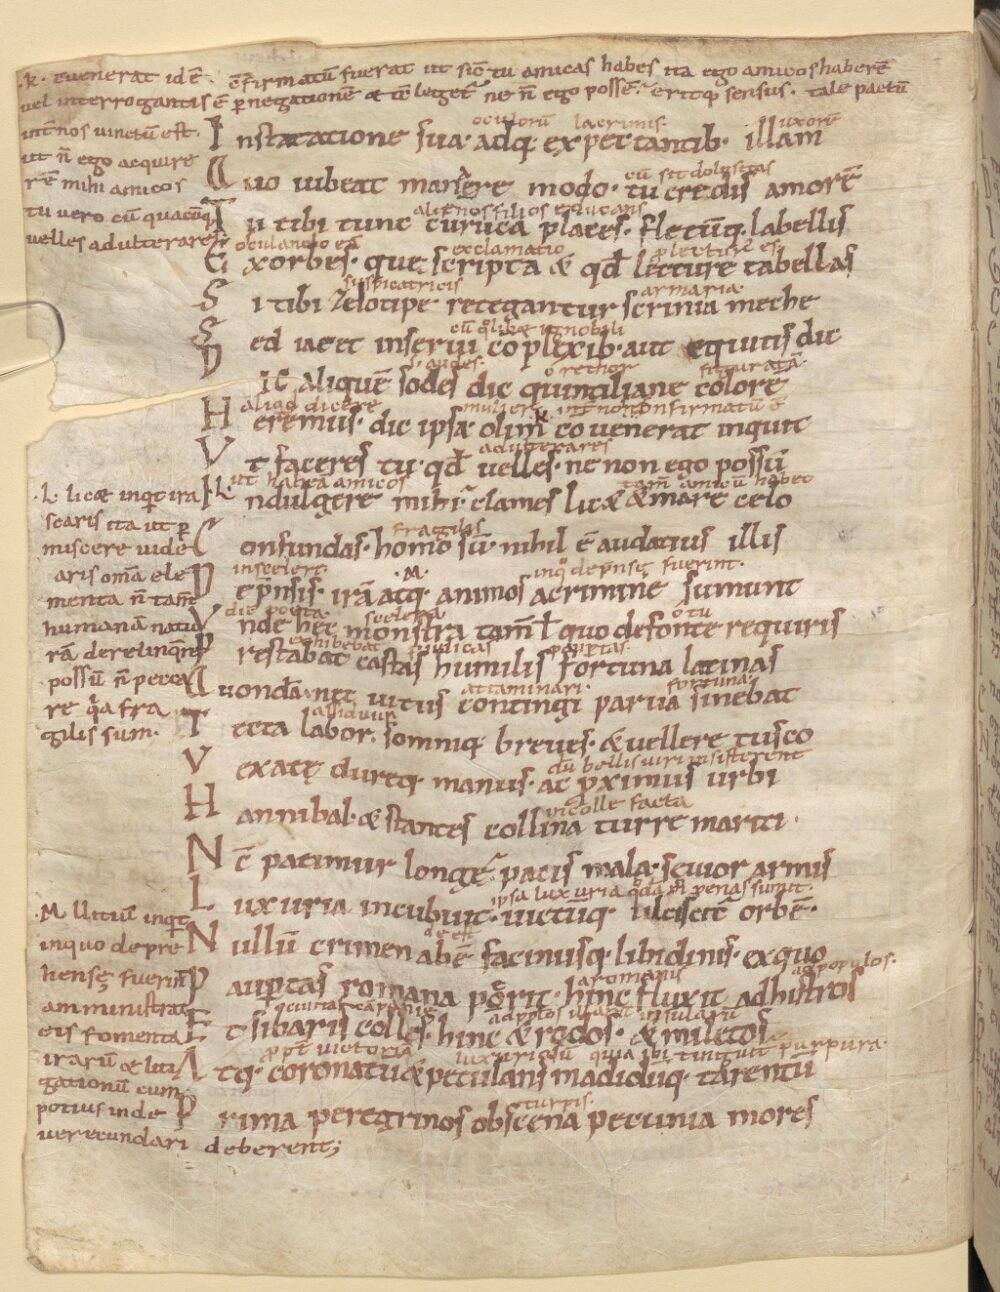 .k. Euenerat id ē. c̄firmatū fuerat ut sic̄ tu amicas habes ita ego amicos haberē
uel interrogantis ē ꝑ negationē & t̄c leget̄ ne n̄ ego possē. eritq; sensus. tale pactū
int̄ nos uinctū est.
ut n̄ ego acquire
rē mihi amicos
tu uero cū quacūq;
uelles adulterares
oculorū lacrimis uxorē
In statione sua. adq; expectantib. illam
cū sit dolositas
Quo iubeat manere modo. tu credis amorē
alienos filios educans
Tu tibi tunc curuca places. fletūq; labellis
osculando eā exclamatio ꝓ lecturꝰ es
Exorbes. quę scripta & qd̄ lecture tabellas
suspicatricis armaria
Si tibi zelotipe retegantur scrinia meche
cū q̄libꝫ ignobili
Sed iacet in serui cōplexib. aut equitis dic
si audes o rethor figuratā
Dic aliquē sodes dic quintiliane colorē
aliqd dicere mulier int nos c̄firmatū ē
Heremus. dic ipsa olim k cōuenerat inquit
adulterares
Vt faceres tu. qd̄ uelles. ne non ego possū
ut habeā amicos tam̄ amicū habeo
Indulgere mihi. clames licꝫ & mare celo
fragilis
Confundas. homo sū. nihil ē audacius illis
in scelere. inq̇ deprensę fuerint.
Dep̄nsis. irā atq; .M. animos a crimine sumunt
dic poeta. scelera o tu
Vnde hęc monstra tam̄ l quo de fonte requiris
exhibebat pudicas paupertas
Prestabat castas humilis fortuna latinas
attaminari. fortuna.
Quondā. nec uitiis contingi parua sinebat
assiduus
Tecta labor. somniq; breues. & uellere tusco
dū bellis uiri insisterent
Vexatę durę q; manus. ac ꝓximus urbi
in colle facta
Hannibal. & stantes collina turre mariti.
Nc̄ patimur longę pacis mala. sęuior armis
ipsa luxuria
Luxuria incubuit. uictūq; ulciscit̄ orbē.
deest
Nullū crimen abē. facinusq; libidinis. ex quo
a romanis ad populos.
Paup̄tas romana perit. hinc fluxit ad histros
Et sibaris colles. hinc & rodos. & miletos
ꝓpt̄ uictoriā luxuriosū quia ibi tinguit purpura.
Atq; coronatū & petulans madidūq; tarentū
turpis.
Prima peregrinos obscena pecunia mores
.L. licꝫ inq̇t ira
scaris ita ut ꝑ
miscere uide
aris om̄a ele
menta n̄ tam̄
humanā natu
rā derelinq̄re
possū n̄ pecca
re q̄a fra
gilis sum.
.M. llitiū inq̇t
in quo depre
hensę fuerint
amministrat
eis fomenta
irarū & liti
gationū cum
potius inde
uerecundari deberent;